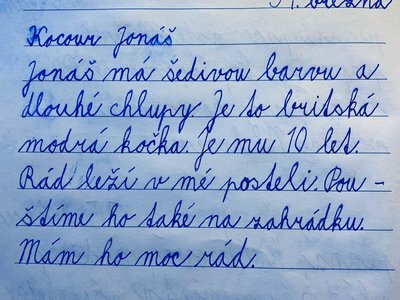 31. března
Kocour Jonáš
Jonáš má šedivou barvu a
dlouhé chlupy. Je to britská
modrá kočka. Je mu 10 let.
Rád leží v mé posteli. Pou -
štíme ho také na zahrádku.
Mám ho moc rád.